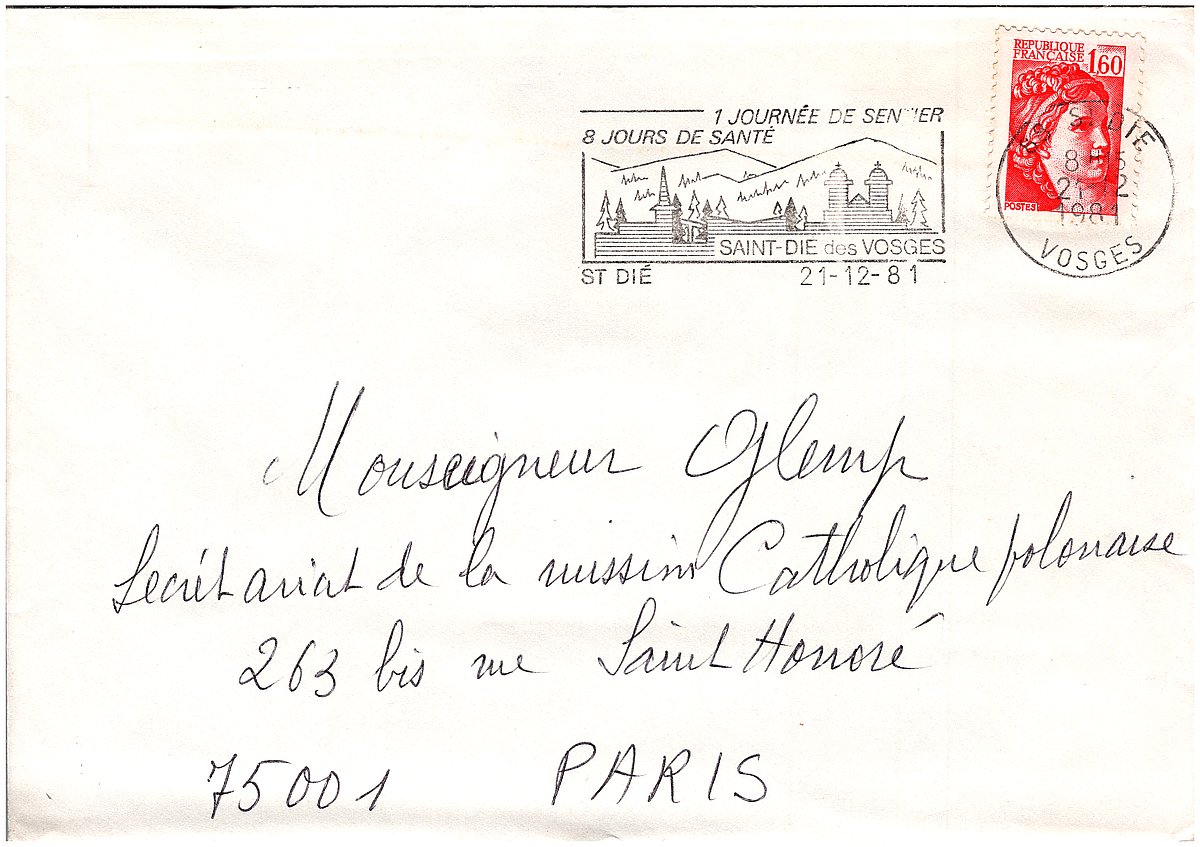 RÉPUBLIQUE
FRANÇAISE 1,60
POSTES
1 JOURNÉE DE SENTIER
8 JOURS DE SANTÉ
SAINT-DIE des VOSGES
ST DIÉ 21-12-81
ST DIE
21-12
1981
VOSGES
Monseigneur Glemp
Secrétariat de la mission Catholique polonaise
263 bis rue Saint Honoré
75001 PARIS